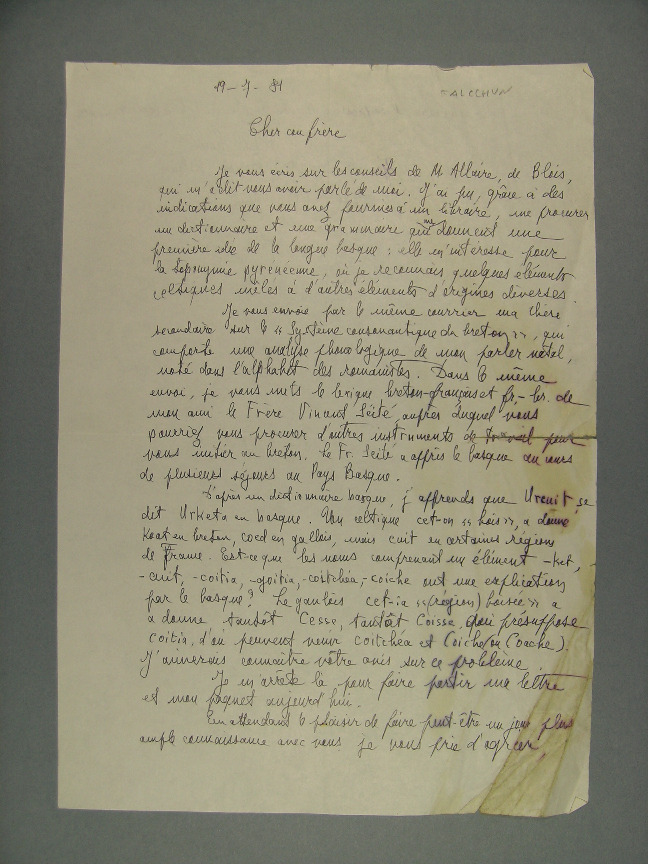 19-7-81
FALCCHUN
Cher confrère
Je vous écris sur les conseils de M Allaire, de Blois,
qui m'a dit vous avoir parlé de moi. J'ai pu, grâce à des
indications que vous avez fournies à un libraire, me procurer
un dictionnaire et une grammaire qui me donnent une
première idée de la langue basque ; elle m'intéresse pour
la toponymie pyrénéenne, où je reconnais quelques éléments
celtiques mêlés à d'autres éléments d'origines diverses.
Je vous envoie par le même courrier ma thèse
secondaire sur le « Système consonantique du breton », qui
comporte une analyse phonologique de mon parler natal,
noté dans l'alphabet des romanistes. Dans le même
envoi, je vous mets le lexique breton-français et fr.-br. de
mon ami le Frère Visant Seité, auprès duquel vous
pourriez vous procurer d'autres instruments de travail pour
vous initier au breton. Le Fr. Seité a appris le basque au cours
de plusieurs séjours au Pays Basque.
D'après un dictionnaire basque, j'apprends que Urcuit se
dit Urketa en basque. Un celtique cet-on « bois », a donné
Koat en breton, coed en gallois, mais cuit en certaines régions
de France. Est-ce que les noms comprenant un élément -ket,
-cuit, -coitia, -goitia, -coitchéa, -coiche ont une explication
par le basque? Le gaulois cet-ia « (région) boisée » a
a donné tantôt Cesse, tantôt Coisse, qui présuppose
coitia, d'où peuvent venir coitchéa et Coiche (ou Coache).
J'aimerais connaître votre avis sur ce problème.
Je m'arrête là pour faire partir ma lettre
et mon paquet aujourd'hui.
En attendant le plaisir de faire peut-être un jour plus
ample connaissance avec vous, je vous prie d'agréer,